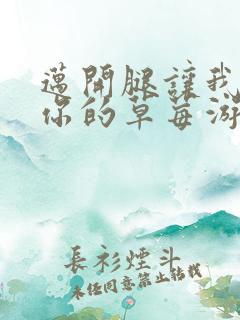 邁開腿讓我
你的草莓游
長衫煙斗
未任同意禁止转载